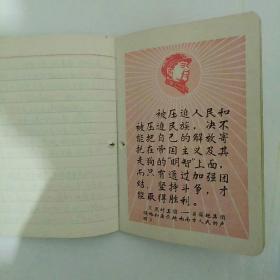 被压迫人民和
被压迫民族,决不
能把自己的解放寄
托在帝国主义及其
走狗的“明智”上面,
而只有通过加强团
结、坚持斗争,才
能取得胜利。